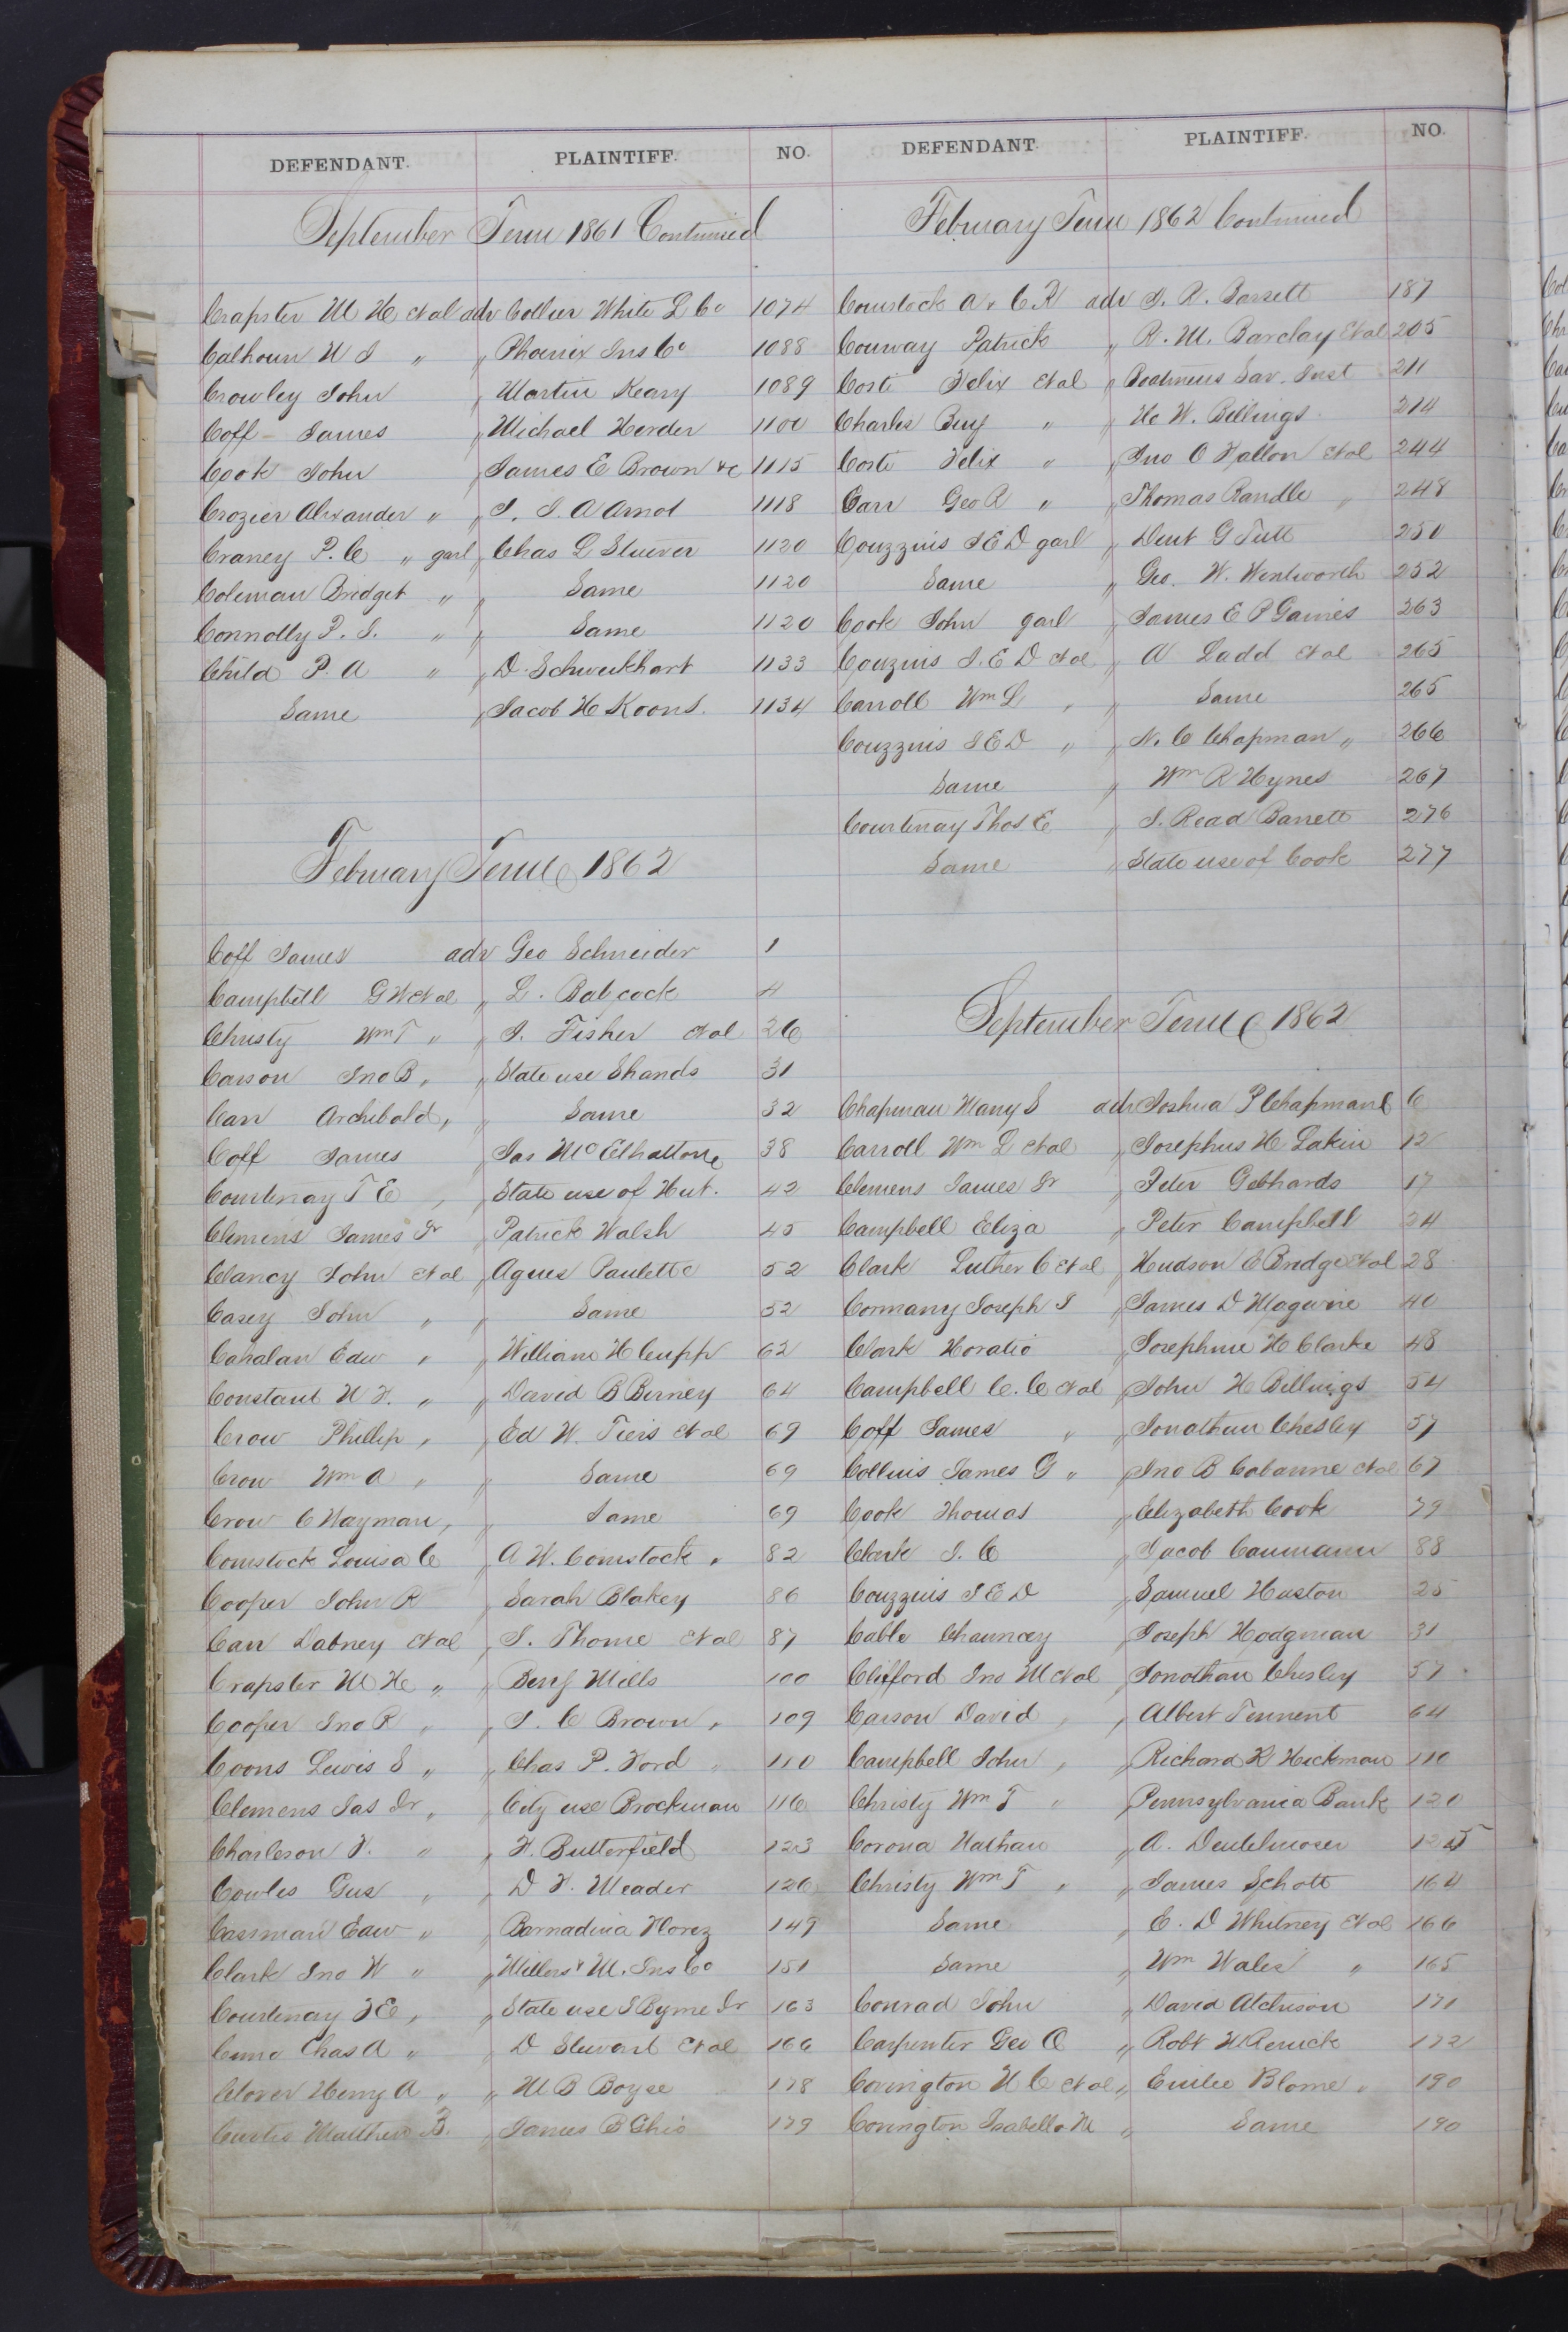 DEFENDANT. PLAINTIFF. NO.
September Term 1861 Continued
Crapster M H et al adv Collier White L Co 1074
Calhoun W S " " Phoenix Ins Co 1088
Crowley John " Martin Keary 1089
Coff James " Michael Herder 1100
Cook John " James E Brown &c 1115
Crozier Alexander " " J. J. A Arnot 1118
Craney P. C " garl " Chas L Stuever 1120
Coleman Bridget " " Same 1120
Connolly P. J. " " Same 1120
Child P. A " " D. Schweikhart 1133
Same " Jacob H Koons. 1134
February Term 1862
Coff James adv Geo Schneider 1
Campbell G W et al " L. Babcock 4
Christy Wm T " " J. Fisher et al 26
Carson Jno B " " State use Shands 31
Carr Archibald " " Same 32
Coff James " Jas McElhattone 38
Courtenay T E " " State use of Hut. 42
Clemens James Jr " Patrick Walsh 45
Clancy John et al " Agnes Paulette 52
Casey John " " Same 52
Cahalan Edw " " William H Cupp 62
Constant W F. " " David B Birney 64
Crow Phillip " " Ed W. Tiers et al 69
Crow Wm A " " Same 69
Crow C Wayman " " Same 69
Comstock Louisa C " A W. Comstock " 82
Cooper John R " Sarah Blakey 86
Carr Dabney et al " J. Thome et al 87
Crapster M H " " Benj Mills 100
Cooper Jno R " " J. C Brown " 109
Coons Lewis S " " Chas P. Ford " 110
Clemens Jas Jr " " City use Brockman 116
Charleson F. " " F. Butterfield 123
Cowles Gus " " D F. Meader 126
Cassman Edw " " Bernadina Florez 149
Clark Jno W " " Millers & M. Ins Co 151
Courtenay T E " " State use J Byrne Jr 163
Chas A " " D Stewart et al 166
Clover Henry A " " M B Boyse 178
Curtis Matthew B. " James B Ghio 179
DEFENDANT. PLAINTIFF. NO.
February Term 1862 Continued
Comstock A & C. R adv J. R. Barsett 187
Conway Patrick " R. M. Barclay et al 205
Coste Felix et al " Boatmens Sav. Inst 211
Charles Benj " " H. W. Billings. 214
Coste Felix " " Jno O Fallon et al 244
Carr Geo R " " Thomas Randle " 248
Couzzins J E D garl " Dent G Tutt 250
Same " Geo. W. Wentworth 252
Cook John garl " James E P Gaines 263
Couzins J. E D et al " A Ladd et al 265
Carroll Wm L " " Same 265
Couzzins J E D " " N. C Chapman " 266
Same " Wm R Hynes 267
Courtenay Thos E " J. Read Barrett 276
Same " State use of Cook 277
September Term 1862
Chapman Mary S adv Joshua P Chapman 6
Carroll Wm L et al " Josephus H Lakin 12
Clemens James Jr " Peter Gebhards 17
Campbell Eliza " Peter Campbell 24
Clark Luther C et al " Hudson E Bridge et al 28
Cormany Joseph J " James D Maguire 40
Clark Horatio " Josephine H Clarke 48
Campbell C. C et al " John H Billings 54
Coff James " " Jonathan Chesley 57
Collins James G " " Jno B Cabanne et al 67
Cook Thomas " Elizabeth Cook 79
Clark J. C " Jacob Caumann 88
Couzzins J E D " Samuel Huston 25
Cable Chauncey " Joseph Hodgman 31
Clifford Jno M et al " Jonathan Chesley 57
Carson David " " Albert Tennent 64
Campbell John " " Richard K Hickman 110
Christy Wm T " " Pennsylvania Bank 120
Corona Nathan " A. Deutelmoser 125
Christy Wm T " " James Schott 164
Same " E. D Whitney et al 166
Same " Wm Wales " 165
Conrad John " David Atchison 171
Carpenter Geo O " Robt W Renick 172
Covington N C et al " Emilie Blome " 190
Covington Isabella M " Same 190